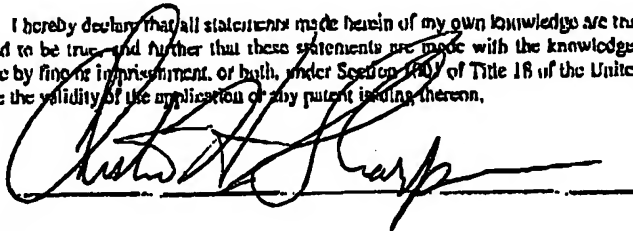 I hereby declare that all statements made herein of my own knowledge are tru
d to be true, and further that these statements are made with the knowledge
e by fine or imprisonment, or both, under Section of Title 18 of the Unite
e the validity of the application or any patent issuing thereon.
Sharp